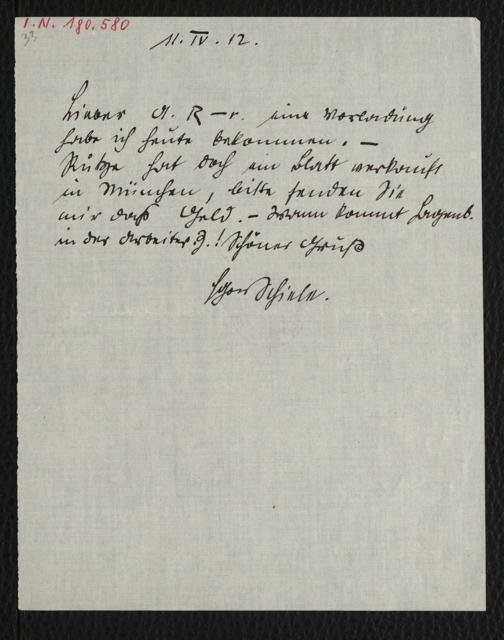 I.N. 180.580
33
11. IV. 12.
Lieber A. R–r. eine Vorladung
habe ich heute bekommen. –
hat doch ein Blatt verkauft
in München, bitte senden Sie
mir das Geld. – Wann kommt Hagenb.
in der Arbeiter Z.! Schöner Gruß
Egon Schiele.